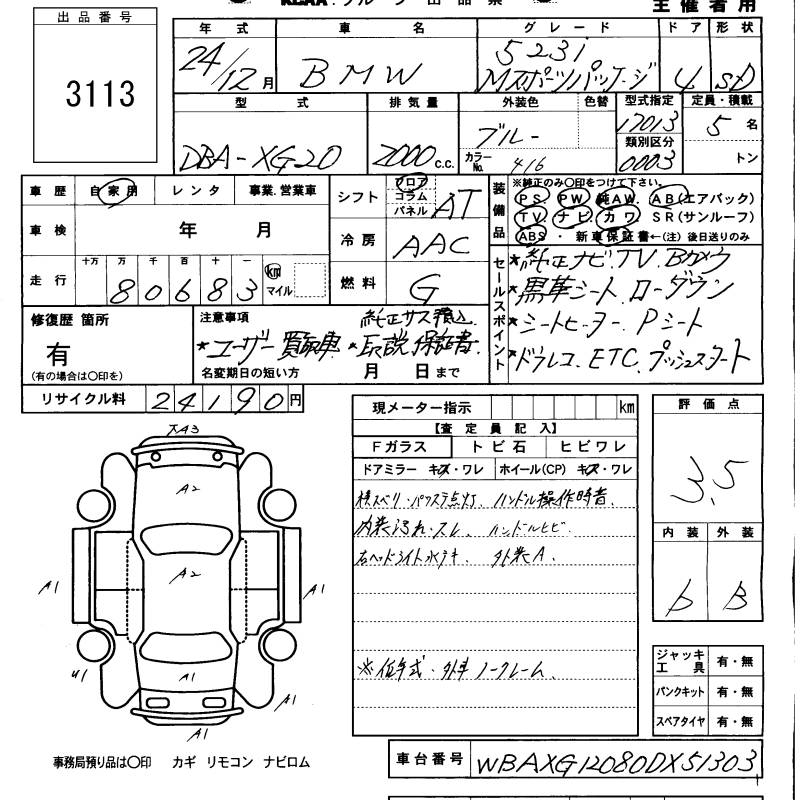 出品番号
3113
主催者用
年式 車名 グレード ドア 形状
24/12月 BMW 523i Mスポーツパッケージ 4 SD
型式 排気量 外装色 色替 型式指定 定員・積載
DBA-XG20 2000 c.c. ブルー 17013 5 名
カラーNo. 416 類別区分 0003 トン
車歴 自家用 レンタ 事業.営業車
車検 年 月
走行 十万 万 千 百 十 一
80683 km マイル
シフト フロア コラム パネル AT
冷房 AAC
燃料 G
装備品 ※純正のみ○印をつけて下さい。
PS PW 純AW. AB(エアバック)
TV ナビ. カワ SR(サンルーフ)
ABS ・ 新車保証書←(注)後日送りのみ
セールスポイント
*純正ナビ.TV.Bカメラ
*黒革シート ローダウン
*シートヒーター. Pシート
*ドラレコ. ETC. プッシュスタート
修復歴 箇所
有
(有の場合は○印を)
注意事項 純正サス積込
*ユーザー買取車 *取説 保証書.
名変期日の短い方 月 日まで
リサイクル料 24190円
現メーター指示 km
【査定員記入】
Fガラス トビ石 ヒビワレ
ドアミラー キズ・ワレ ホイール(CP) キズ・ワレ
横スベリ・パワステ点灯. ハンドル操作時音.
内装汚れ・スレ. ハンドルヒビ.
右ヘッドライト水テキ. 外装A.
※低年式・外車 ノークレーム.
評価点
3.5
内装 外装
b B
ジャッキ工具 有・無
パンクキット 有・無
スペアタイヤ 有・無
A2
A2
A1
A1
A1
U1
A1
A1
事務局預り品は○印 カギ リモコン ナビロム
車台番号 WBAXG12080DX51303